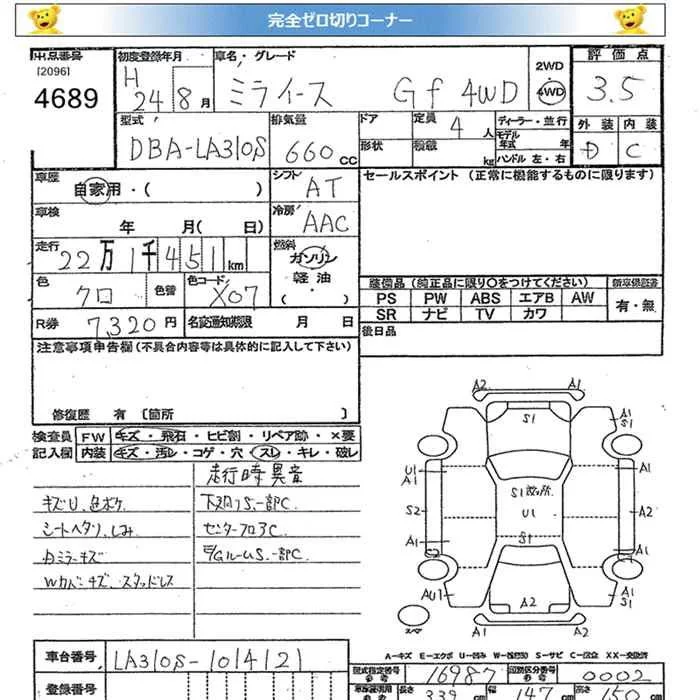 完全ゼロ切りコーナー
出品番号 初度登録年月 車名・グレード 2WD 評価点
[2096] H
4689 24年8月 ミライース Gf 4WD 4WD 3.5
型式 排気量 ドア 定員 4人 ディーラー・並行 外装 内装
モデル年式 年
DBA-LA310S 660cc 形状 積載 kg ハンドル 左・右 D C
車歴 シフト セールスポイント(正常に機能するものに限ります)
自家用・( ) AT
車検 冷房
年 月(日) AAC
走行 燃料
22万1千451km ガソリン
色 色コード 軽油 装備品(純正品に限り○をつけてください) 新車保証書
クロ 色替 X07 ・( ) PS PW ABS エアB AW 有・無
R券 7,320円 名変通知期限 月 日 SR ナビ TV カワ
注意事項申告欄(不具合内容等は具体的に記入して下さい) 後日品
修復歴 有[箇所 ]
検査員 FW キズ・飛石・ヒビ割・リペア跡・×要
記入欄 内装 キズ・汚レ・コゲ・穴・スレ・キレ・破レ
走行時異音
キズU.色ボケ 下廻りS.一部C.
シートヘタリ.しみ センターフロアC
内ミラーキズ E/GルームS.一部C.
Wカバーキズ.スタッドレス
A2 A1
S1
A1
S1
U1 A1
A1
S1
U1
S2 A2
S1
A1 A1
S2 S1
AU1 A1
S1
A2
スペア A1 A2
A-キズ E-エクボ U-凹み W-補修跡 S-サビ C-腐食 XX-交換済
車台番号 LA310S-1014121
型式指定番号 16987 類別区分番号 0002
登録番号 長さ 339cm 幅 147cm 高さ 150cm